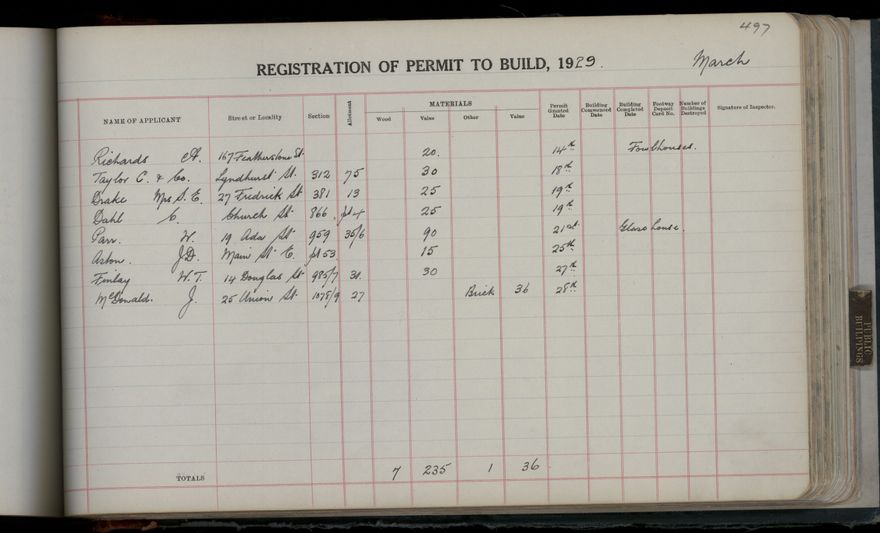 497
REGISTRATION OF PERMIT TO BUILD, 1929. March
NAME OF APPLICANT Street or Locality Section Allotment MATERIALS Wood Value Other Value Permit Granted Date Building Commenced Date Building Completed Date Footway Deposit Card No. Number of Buildings Destroyed Signature of Inspector.
Richards A. 167 Featherstone St. 20. 14th Fowlhouses.
Taylor C. & Co. Lyndhurst St. 312 75 30 18th
Drake Mrs S. E. 27 Fredrick St 381 13 25 19th
Dahl C. Church St 866 pt 4 25 19th
Parr. W. 19 Ada St 959 35/6 90 21st Glass house.
Aston. J.D. Main St E. pt 53 15 25th
Finlay W.T. 14 Douglas St 985/7 30 27th
McDonald. J. 25 Union St. 1078/9 27 Brick 36 28th
TOTALS 7 235 1 36
PUBLIC BUILDINGS